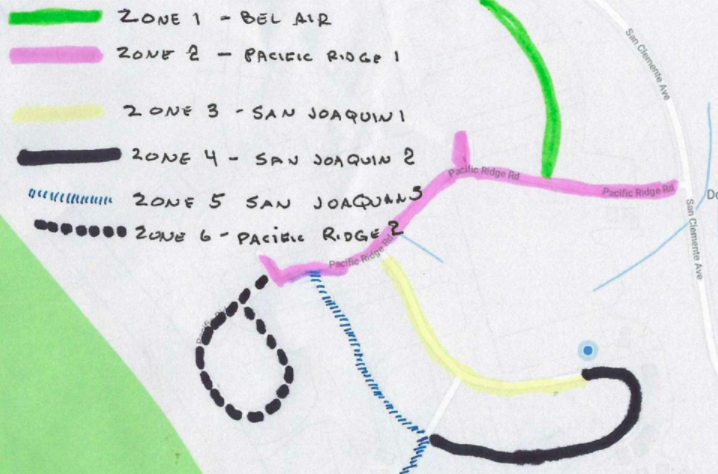 ZONE 1 - BEL AIR
ZONE 2 - PACIFIC RIDGE 1
ZONE 3 - SAN JOAQUIN 1
ZONE 4 - SAN JOAQUIN 2
ZONE 5 SAN JOAQUAN 3
ZONE 6 - PACIFIC RIDGE 2
San Clemente Ave
Pacific Ridge Rd
Pacific Ridge Rd
San Clemente Ave
Pacific Ridge Rd